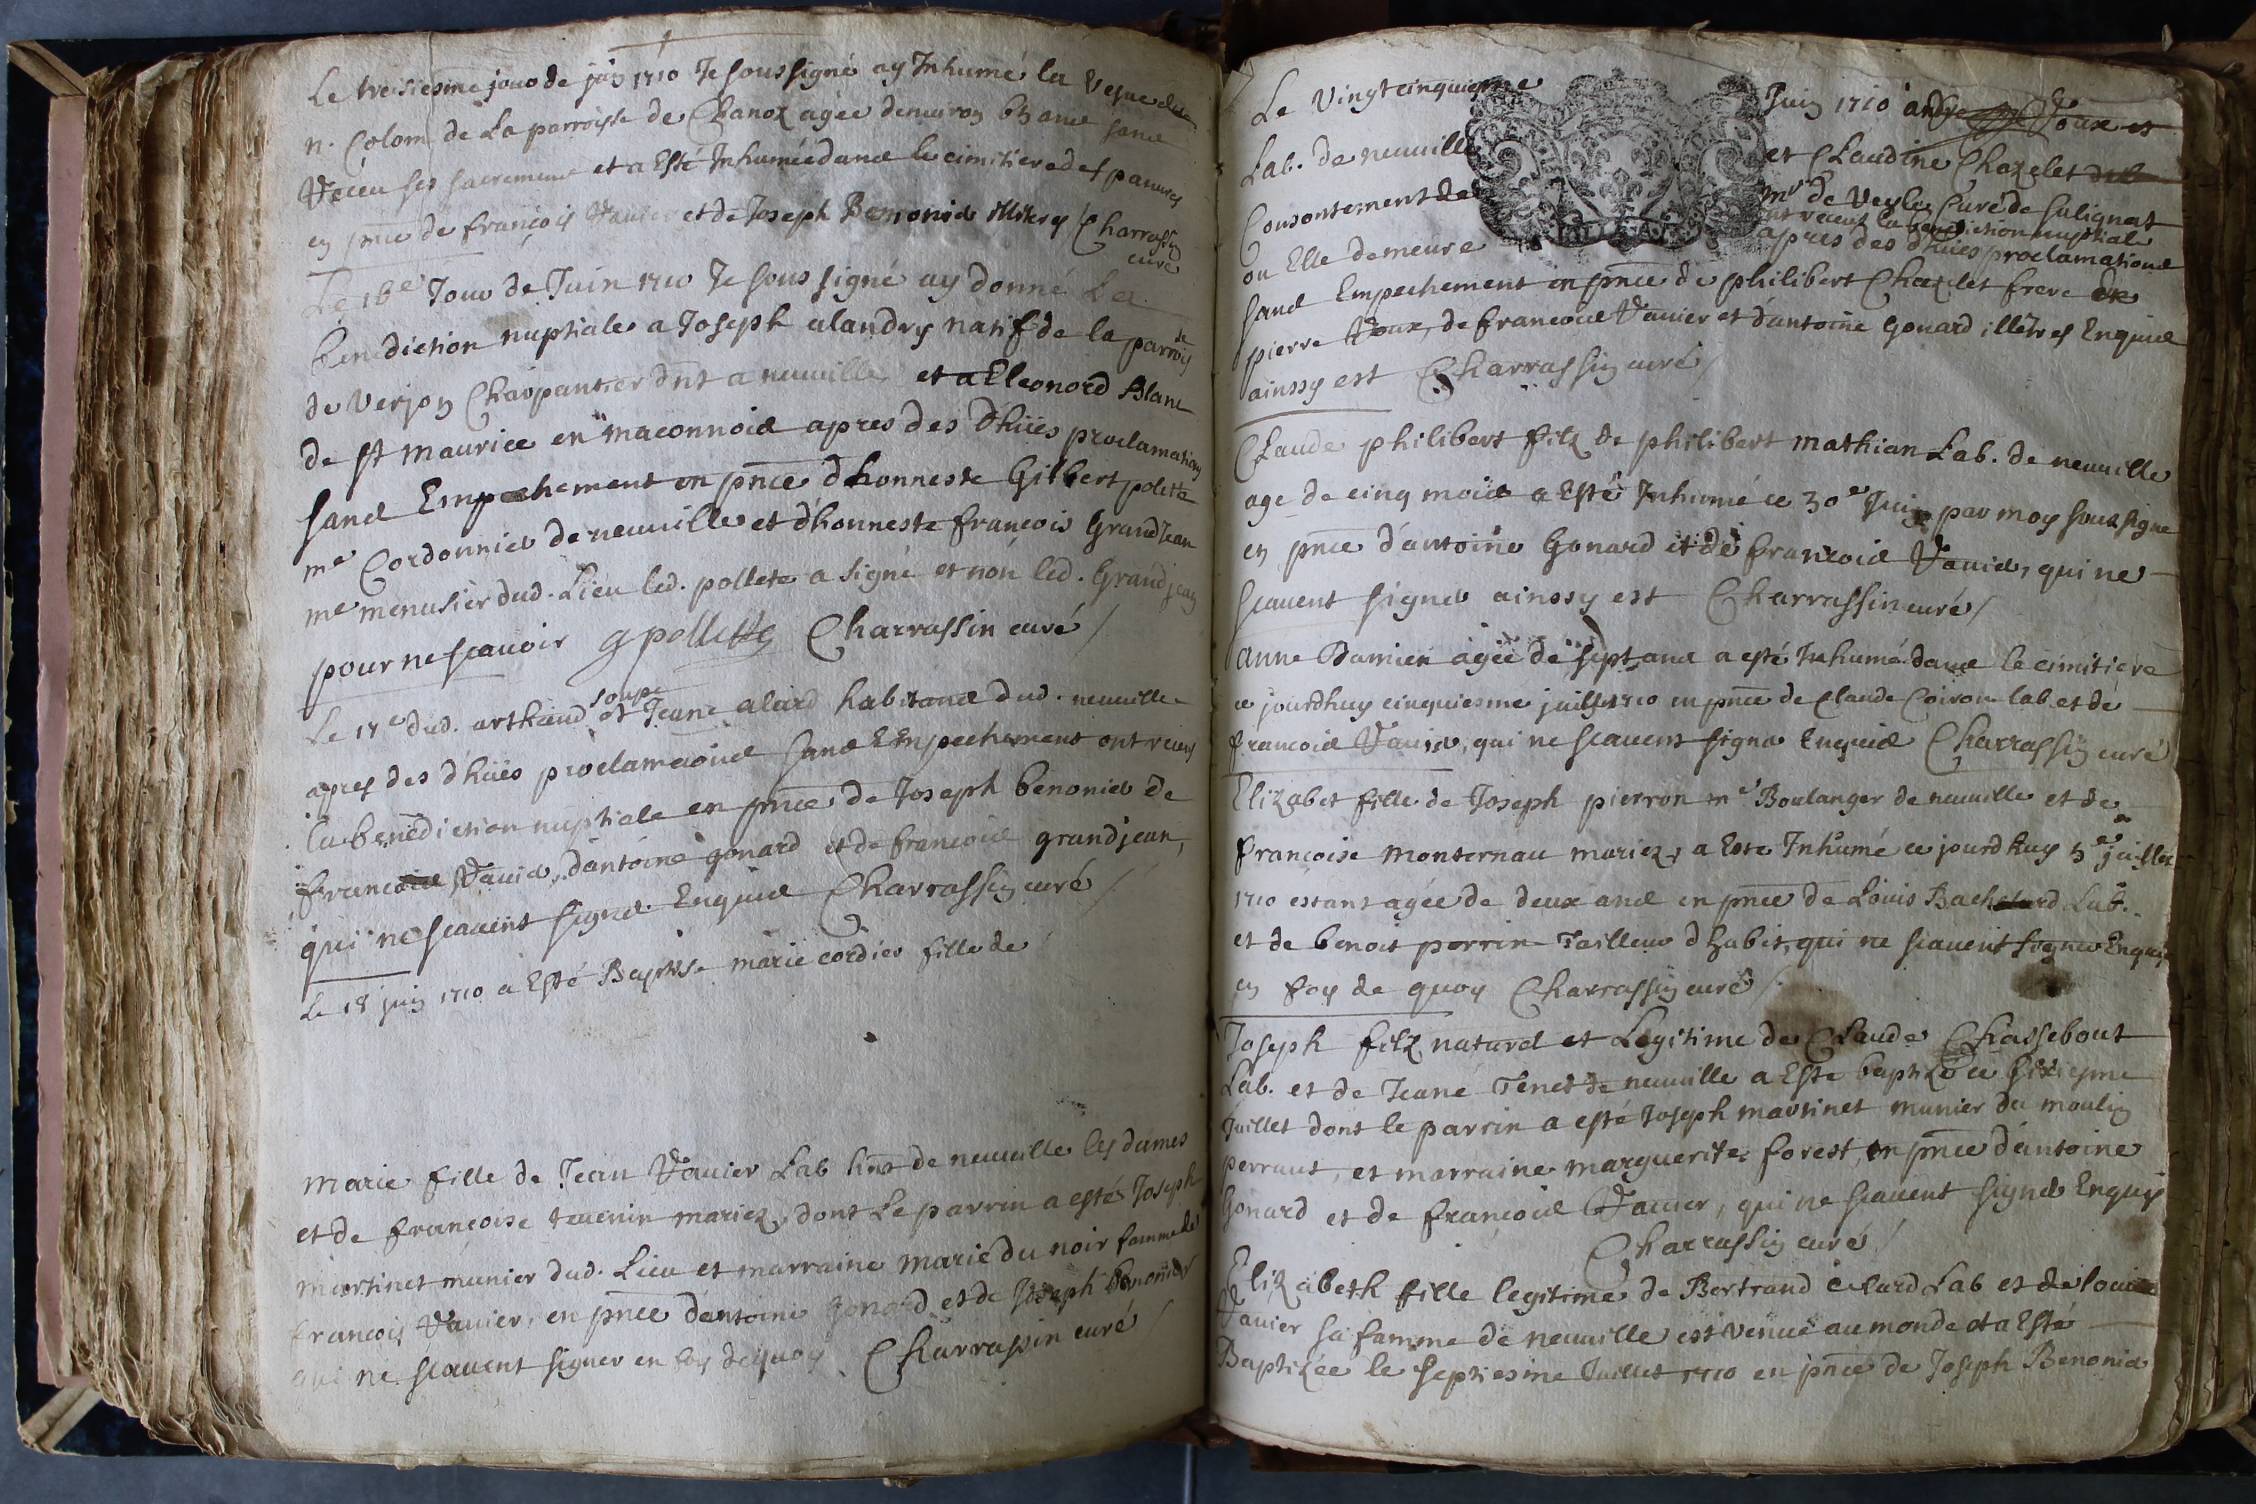 Le treisiesme jour de juin 1710 Je soussigné ay Inhumé la Vesue de
n. Colom de La parroisse de Chanoz agée denuiron 65 ans sans
receu ses sacrements et a Esté Inhumée dans le cimitiere des pauures
en pnce de françois Vauier et de Joseph Benonier illitres Charrassin
curé
Le 16e Jour de Juin 1710 Je soussigné ay donné La
benediction nuptiale a Joseph alandry natif de la parroisse
de Verjon Charpantier dnt a neuuille et a Eleonord Blanc
de st maurice en maconnois apres des d'hües proclamations
sans Empechement en pnce d'honneste Gilbert polette
me Cordonnier de neuuille et d'honneste francois GrandJean
me menusier dud. Lieu led. pollete a signé et non led. Grandjean
pour ne scauoir gpollette Charrassin curé /
soupe
Le 17e dud. arthaud et Jeane alard habitans dud. neuuille
apres des d'hües proclamaons sans Empechement ont receu
la benediction nuptiale en pnce de Joseph benonier de
francois Vauier, d'antoine gonard et de francois grandjean,
qui ne scauent signer Enquis Charrassin curé /
Le 18 juin 1710 a Esté Baptise marie cordier fille de
marie fille de Jean Vauier Lab hnt de neuuille les dames
et de francoise teuenin mariez, dont Le parrin a esté Joseph
martinet munier dud. Lieu et marraine marie du noir famme de
francois Vauier, en pnce d'antoine Gonard et de Joseph Benonier
qui ne scauent signer en foy dequoy Charrassin curé /
Le Vingtcinquieme Juin 1710 andre Voux et
Lab. de neuuille et Claudine Chazelet
Consentement de mr de Veyle Curé de salignat
ont receuz la benediction nuptiale
ou Elle demeure apres des d'hües proclamations
sans Empechement en pnce de philibert Chazelet frere de
pierre Voux, de francois Vauier et d'antoine Gonard illitres Enquis
ainssy est Charrassin curé /
Claude philibert filz de philibert mathian Lab. de neuuille
age de cinq mois a Esté Inhumé ce 30e Juin par moy soussigne
en pnce d'antoine Gonard et de francois Vauier, qui ne
scauent signer ainssy est Charrassin curé /
anne Damien agée de sept ans a esté Inhumé dans le cimitiere
ce jourdhuy cinquiesme juillet 1710 en pnce de Claude Coiron lab. et de
francois Vauier, qui ne scauent signer Enquis Charrassin curé
Elizabet fille de Joseph pierron me Boulanger de neuuille et de
francoise monternau mariez, a Este Inhumé ce jourdhuy 5e juillet
1710 estant agée de deux ans en pnce de Louis Bachelard Lab.
et de benoit perrin Tailleur d'habit, qui ne scauent signer Enquis
en foy de quoy Charrassin curé /
Joseph filz naturel et Legitime de Claude Chassebout
Lab. et de Jeane Tenet de neuuille a Este baptizé ce sixiesme
Juillet dont le parrin a esté Joseph martinet munier du moulin
perraut, et marraine marguerite forest, en pnce d'antoine
Gonard et de francois Vauier, qui ne scauent signer Enquis
Charrassin curé /
Elizabeth fille legitime de Bertrand Lab et de louise
Vauier sa famme de neuuille est venue au monde et a Esté
Baptizée le septiesme Juillet 1710 en pnce de Joseph Benonier